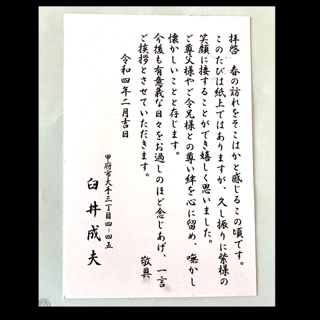 拝啓　春の訪れをそこはかと感じるこの頃です。
このたびは紙上ではありますが、久し振りに紫様の
笑顔に接することができ嬉しく思いました。
ご尊父様やご令兄様との尊い絆を心に留め、噫かし
懐かしいことと存じます。
今後も有意義な日々をお過しのほど念じあげ、一言
ご挨拶とさせていただきます。
敬具
令和四年二月吉日
甲府市大手三丁目四-四五
臼井成夫